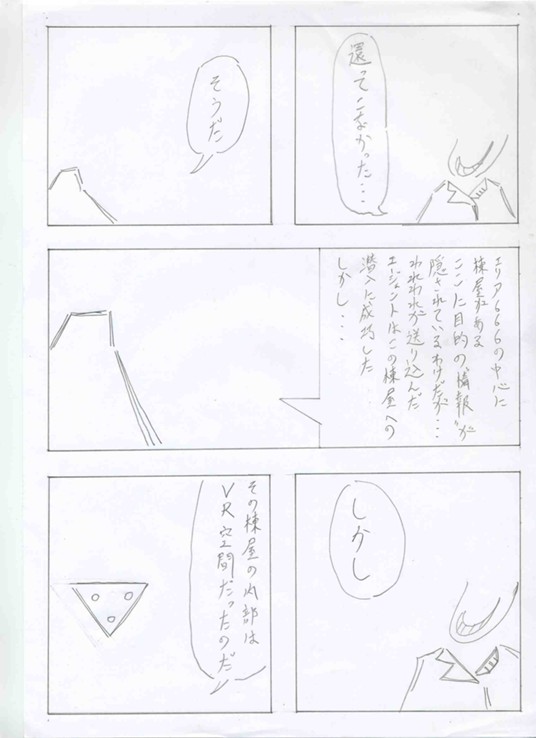 還ってこなかった・・・
そうだ
エリア666の中心に
棟屋がある
ここに目的の〝情報〟が
隠されているわけだが・・・
われわれが送り込んだ
エージェントはこの棟屋への
潜入に成功した
しかし・・・
しかし
その棟屋の内部は
VR空間だったのだ